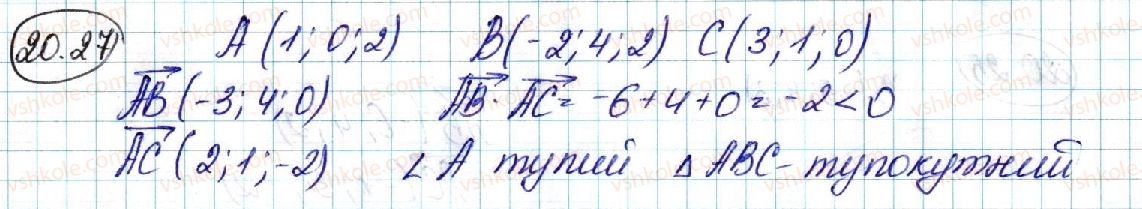 20.27) A (1; 0; 2) B(-2; 4; 2) C(3; 1; 0)
AB (-3; 4; 0) AB · AC = -6+4+0 = -2 < 0
AC (2; 1; -2) ∠ A тупий Δ ABC - тупокутний